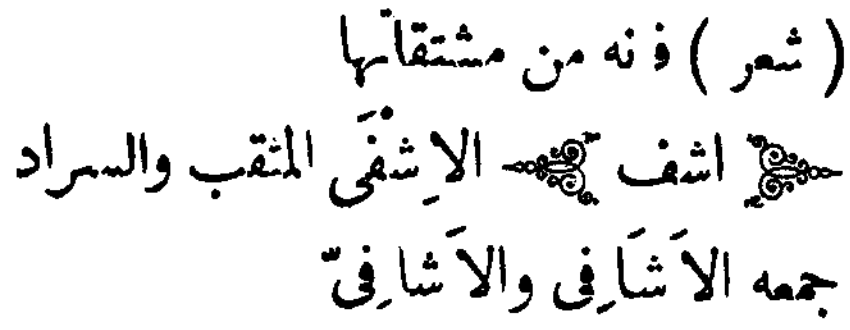 ( شعر ) فنه من مشتقاتها
﴿ اشف ﴾ الاِشْفَى المثقب والسراد
جمعه الاَشَافِى والاَشافِىّ